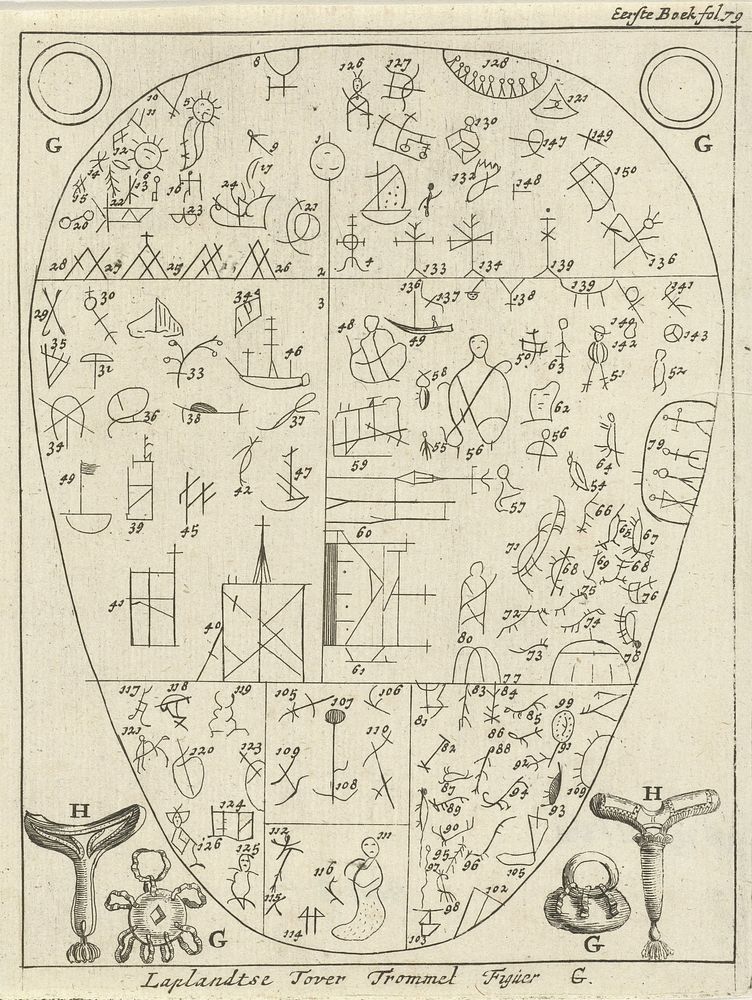 Eerste Boek fol 79
8 126 127 128
10 5 121
G 11 G
12 1 130 147 149
9
14 6 17 132 148 150
15 13 16
22 24
20 23 21
28 27 25 26 2 4 133 134 139 136
3
29 30 34 136 137 138 139 141
48 49 144
35 46 50 142 143
31 33 58 63 51 52
62
34 36 38 37 56
59 55 56 64 79
49 42 47 54
39 45 57 66
60 71 65 67
68 69 68
41 75 76
40 72 74
80 73 78
61 77
117 118 119 105 107 106 83 84 99
121 81 86 85
120 123 109 110 82 88 91
108 87 92 94 93 109
H 124 89 H
126 112 111 90
125 95 96 105
116 97
115 98 102
G 114 103 G
Laplandtse Tover Trommel Figuer G.